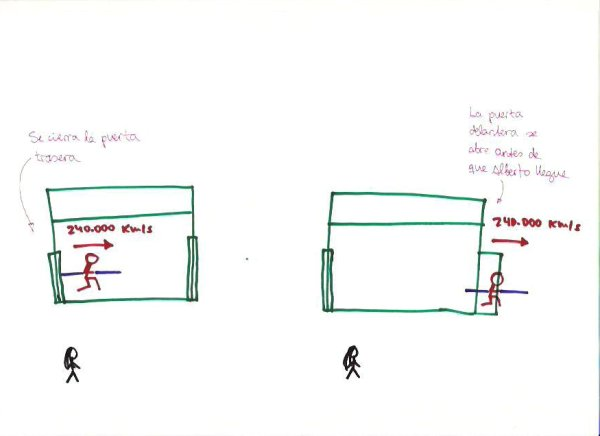 Se cierra la puerta
trasera
240.000 Km/s
La puerta
delantera se
abre antes de
que Alberto llegue
240.000 Km/s